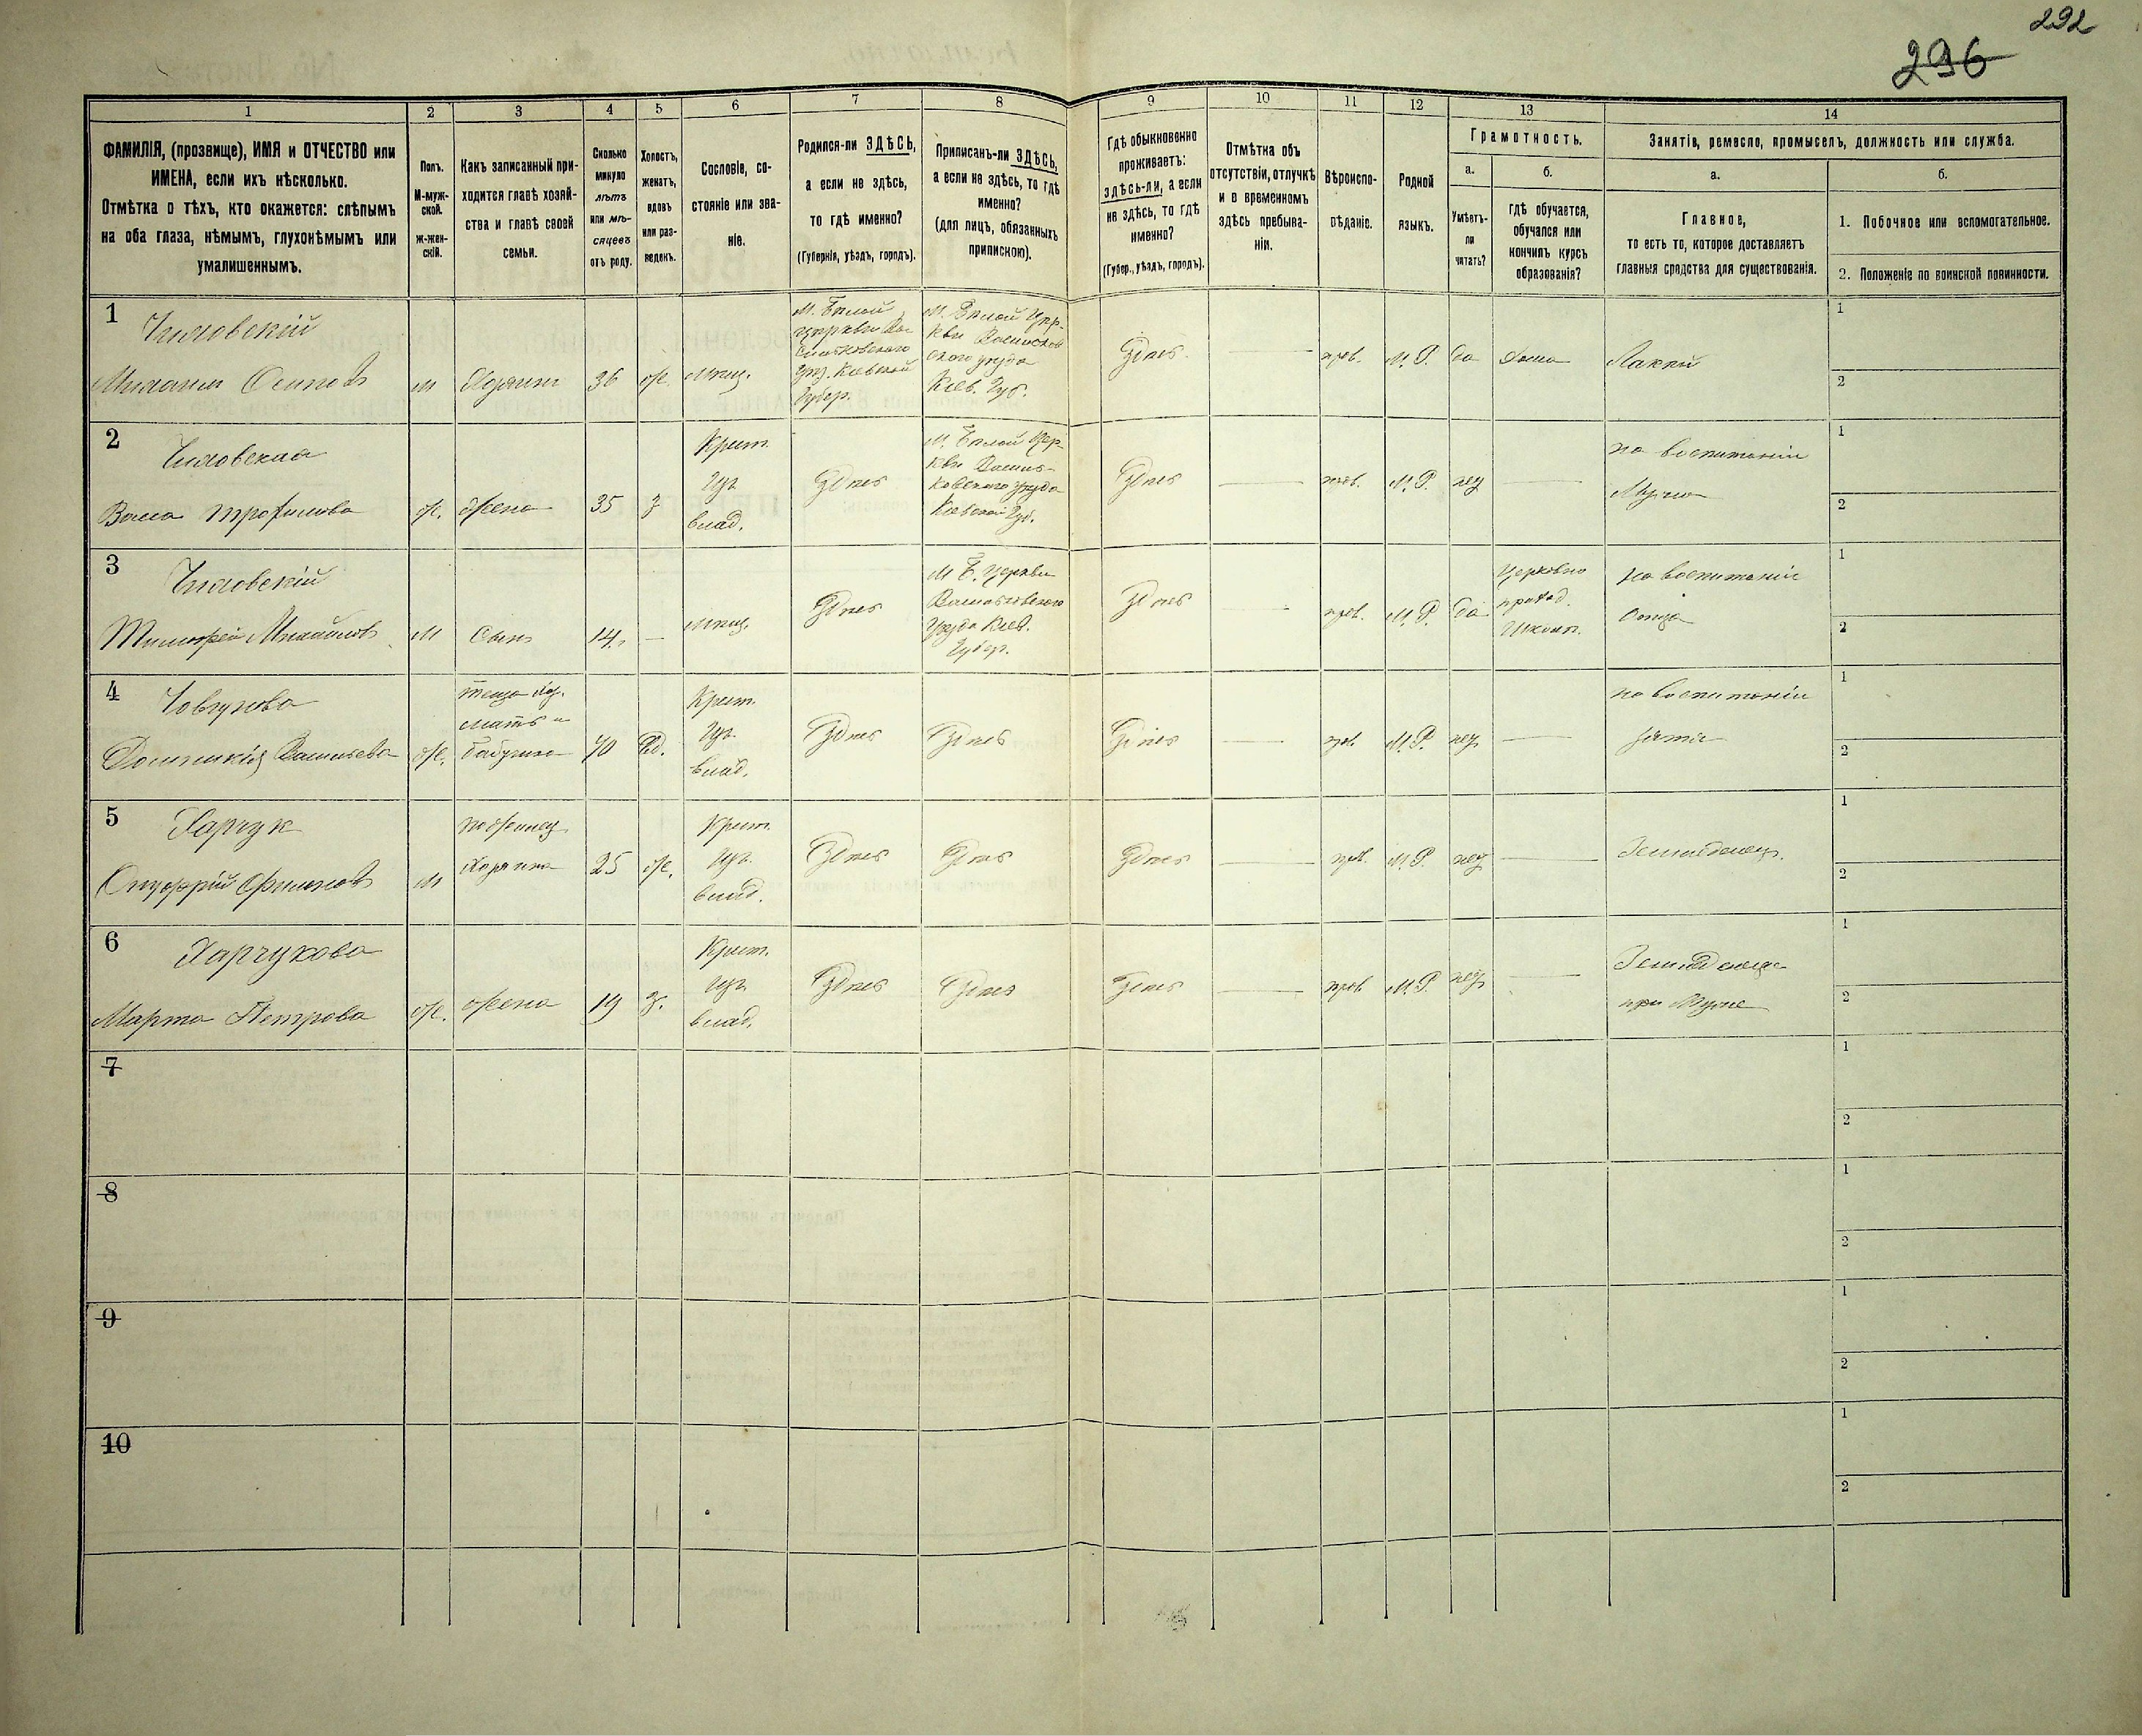 292
296
1
2
3
4
5
6
7
8
9
10
11
12
13
14
ФАМИЛІЯ, (прозвище), ИМЯ и ОТЧЕСТВО или
ИМЕНА, если ихъ нѣсколько.
Отмѣтка о тѣхъ, кто окажется: слѣпымъ
на оба глаза, нѣмымъ, глухонѣмымъ или
умалишеннымъ.
Полъ.
М-муж-
ской.
ж-жен-
скій.
Какъ записанный при-
ходится главѣ хозяй-
ства и главѣ своей
семьи.
Сколько
минуло
лѣтъ
или мѣ-
сяцевъ
отъ роду.
Холостъ,
женатъ,
вдовъ
или раз-
веденъ.
Сословіе, со-
стояніе или зва-
ніе.
Родился-ли ЗДѢСЬ,
а если не здѣсь,
то гдѣ именно?
(Губернія, уѣздъ, городъ).
Приписанъ-ли ЗДѢСЬ,
а если не здѣсь, то гдѣ
именно?
(для лицъ, обязанныхъ
припискою).
Гдѣ обыкновенно
проживаетъ:
здѣсь-ли, а если
не здѣсь, то гдѣ
именно?
(Губер., уѣздъ, городъ).
Отмѣтка объ
отсутствіи, отлучкѣ
и о временномъ
здѣсь пребыва-
ніи.
Вѣроиспо-
вѣданіе.
Родной
языкъ.
Грамотность.
а.
Умѣетъ-
ли
читать?
б.
гдѣ обучается,
обучался или
кончилъ курсъ
образованія?
Занятіе, ремесло, промыселъ, должность или служба.
а.
Главное,
то есть то, которое доставляетъ
главныя средства для существованія.
б.
1. Побочное или вспомогательное.
2. Положеніе по воинской повинности.
1
Михаилъ Осиповъ
м
Хозяинъ
36
ж.
мѣщ.
М. Бѣлой
церкви Ва-
сильковскаго
уѣз. Кіевской
Губер.
М. Бѣлой Цер-
кви Васильков
скаго уѣзда
Кіев. Губ.
Здѣсь
прав.
М. Р.
да
дома
Лакей
1
2
2
Трофимова
ж.
жена
35
з
Крест.
изъ
влад.
Здѣсь
М. Бѣлой Цер-
кви Василь-
ковскаго уѣзда
Кіевской Губ.
Здѣсь
прав.
М. Р.
нѣт
на воспитаніи
Мужа
1
2
3
Тимофей Михайловъ
м
Сынъ
14
мѣщ.
Здѣсь
М. Б. Церкви
Васильковскаго
уѣзда Кіев.
Губер.
Здѣсь
прав.
М. Р.
да
Церковно
приход.
Школѣ
на воспитаніи
Отца
1
2
4
Васильева
ж.
теща хоз.
мать и
бабушка
70
Вд.
Крест.
изъ
влад.
Здѣсь
Здѣсь
Здѣсь
прав.
М. Р.
нѣт
на воспитаніи
зятя
1
2
5
Харчук
Онуфрій Филиповъ
м
Хозяина
25
ж.
Крест.
изъ
влад.
Здѣсь
Здѣсь
Здѣсь
прав.
М. Р.
нѣт
Земледѣлец.
1
2
6
Харчукова
Марта Петрова
ж.
жена
19
з.
Крест.
изъ
влад.
Здѣсь
Здѣсь
Здѣсь
прав.
М. Р.
нѣт
при Мужѣ
1
2
7
1
2
8
1
2
9
1
2
10
1
2